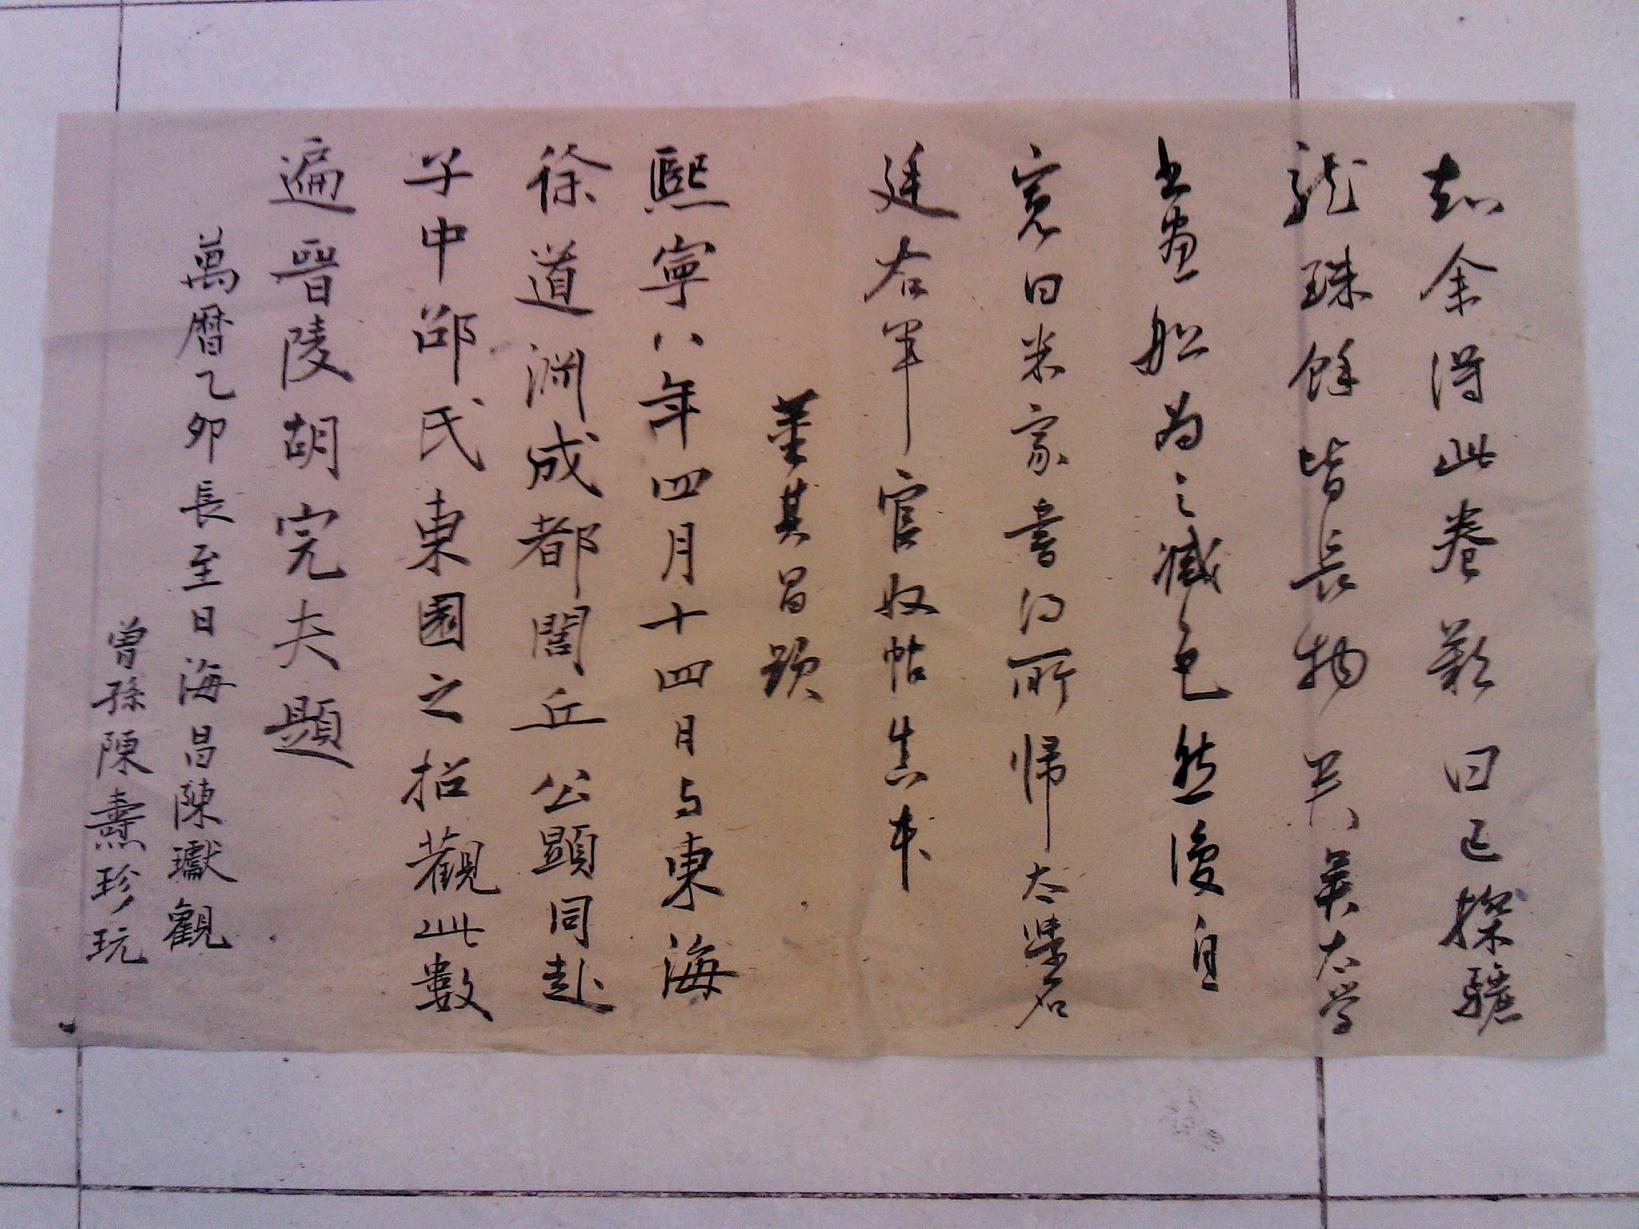 知余得此卷歎曰已探驪
龍珠餘皆長物矣吳太學
書畫船為之減色然後自
寬曰米家書得所歸太學名
廷右軍官奴帖真本
董其昌題
熙寧八年四月十四日與東海
徐道淵成都閭丘公顯同赴
子中邵氏東園之招觀此數
遍晉陵胡完夫題
萬曆乙卯長至日海昌陳瓛觀
曾孫陳燾珍玩